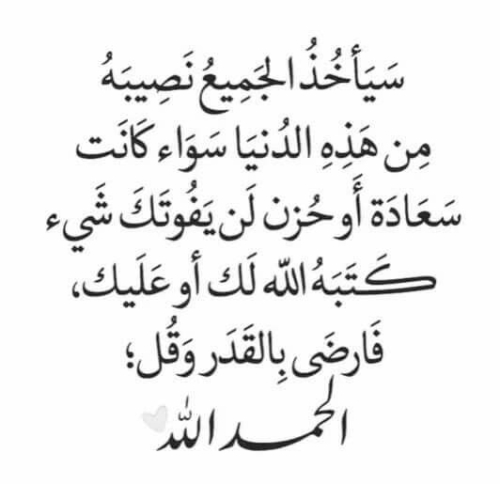 سَيَأخُذُ الجَمِيعُ نَصِيبَهُ
مِن هَذِهِ الدُنيَا سَوَاء كَانَت
سَعَادَة أَو حُزن لَن يَفُوتَكَ شَيء
كَتَبَهُ اللّه لَك أو عَلَيك،
فَارضَى بِالقَدَر وَقُل؛
الحمد الله